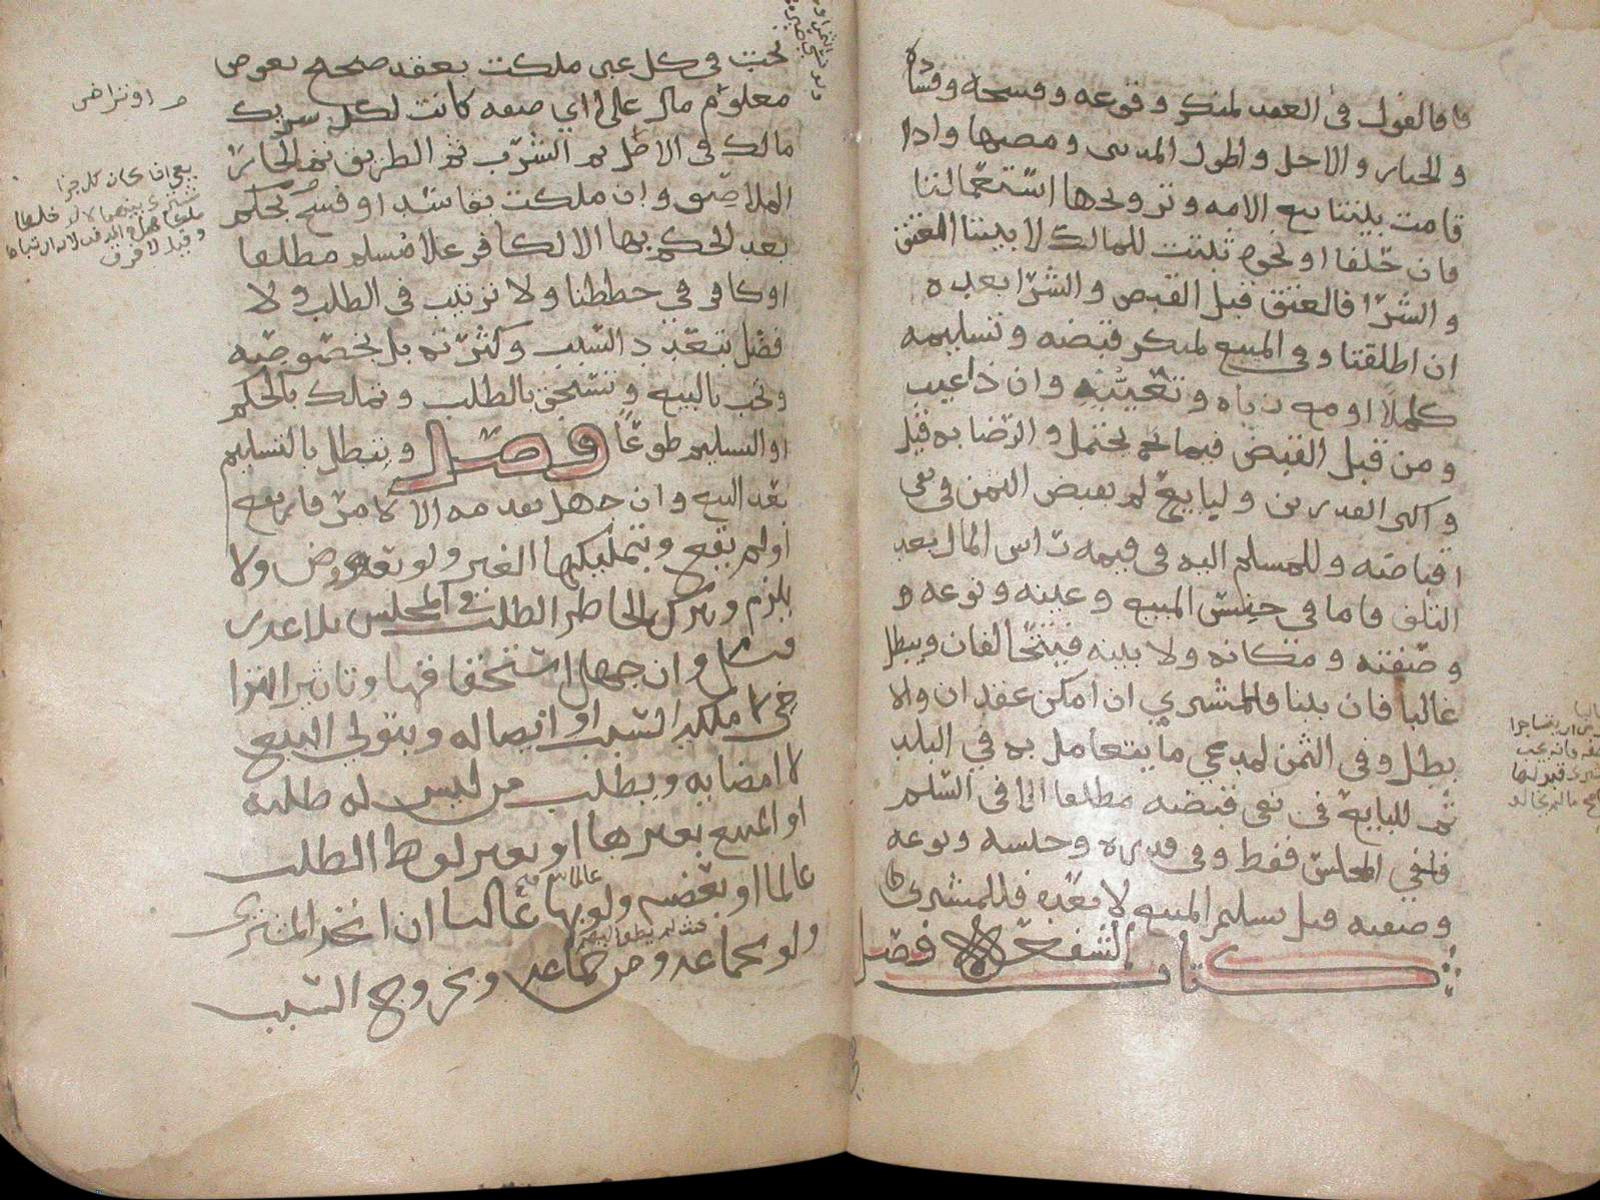 فا فالقول في العقد لمنكر وقوعه وفسخه وفساده
والخيار والاجل واطول المدتين ومضيها واذا
قامت بينتا بيع الامه وتزويجها استعملتا
فان حلفا او نحوه ثبتت للمالك لا بينتا العتق
والشرا فالعتق قبل القبض والشرا بعده
ان اطلقتا وفي المبيع لمنكر قبضه وتسليمه
كاملا او مع زياده وتعيبه وان ذا عيب
ومن قبل القبض فيما يحتمل والرضا به قيل
واكثر القدرين ولبايع لم يقبض الثمن في نفي
اقباضه وللمسلم اليه في قيمة راس المال بعد
التلف فاما في جنس المبيع وعينه ونوعه و
وصفته ومكانه ولا بينه فيتحالفان ويبطل
غالبا فان بينا فللمشتري ان امكن عقدان والا
بطل وفي الثمن لمدعي ما يتعامل به في البلد
ثم للبايع في نفي قبضه مطلقا الا في السلم
ففي المجلس فقط وفي قدره وجنسه ونوعه
وصفته قبل تسليم المبيع لا بعده فللمشتري
كتاب الشفعة فصل
تجب في كل عين ملكت بعقد صحيح بعوض
معلوم مال على اي صفه كانت لكل شريك
مالك في الاصل ثم الشرب ثم الطريق ثم الجار
الملاصق وان ملكت بفاسد او فسخ بحكم
بعد الحكم بها الا لكافر على مسلم مطلقا
او كافر في خططنا ولا ترتيب في الطلب ولا
فضل بتعدد السبب وكثرته بل بخصوصه
وتجب بالبيع وتستحق بالطلب وتملك بالحكم
او التسليم طوعا فصل وتبطل بالتسليم
بعد البيع وان جهل تقدمه الا لامر فارتفع
او لم يقع وبتمليكها الغير ولو بعوض ولا
يلزم وبترك الحاضر الطلب في المجلس بلا عذر
قيل وان جهل استحقاقها وتاثير التراخي
لا ملكه السبب او اتصاله وبتولي البيع
لا امضائه وبطلب من ليس له طلبه
او المبيع بغيرها او بغير لفظ الطلب
عالما او بعضه ولو بها غالبا ان اتحد المشتري
ولو لجماعه ومن جماعه وبخروج السبب